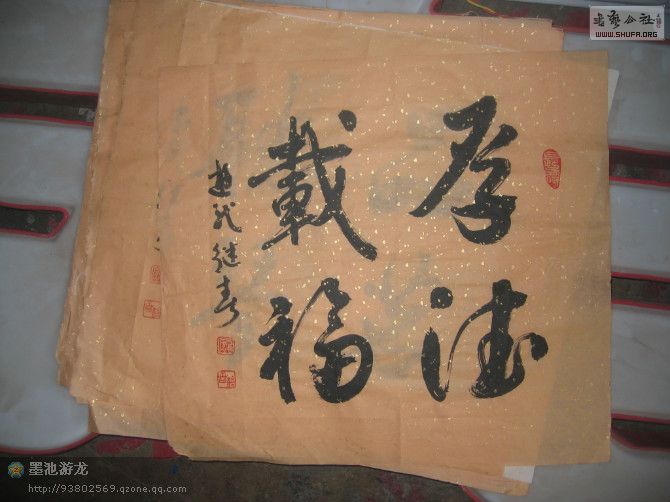 厚德
載福
遊龙继春
書藝公社
WWW.SHUFA.ORG
墨池游龙
http://93802569.qzone.qq.com